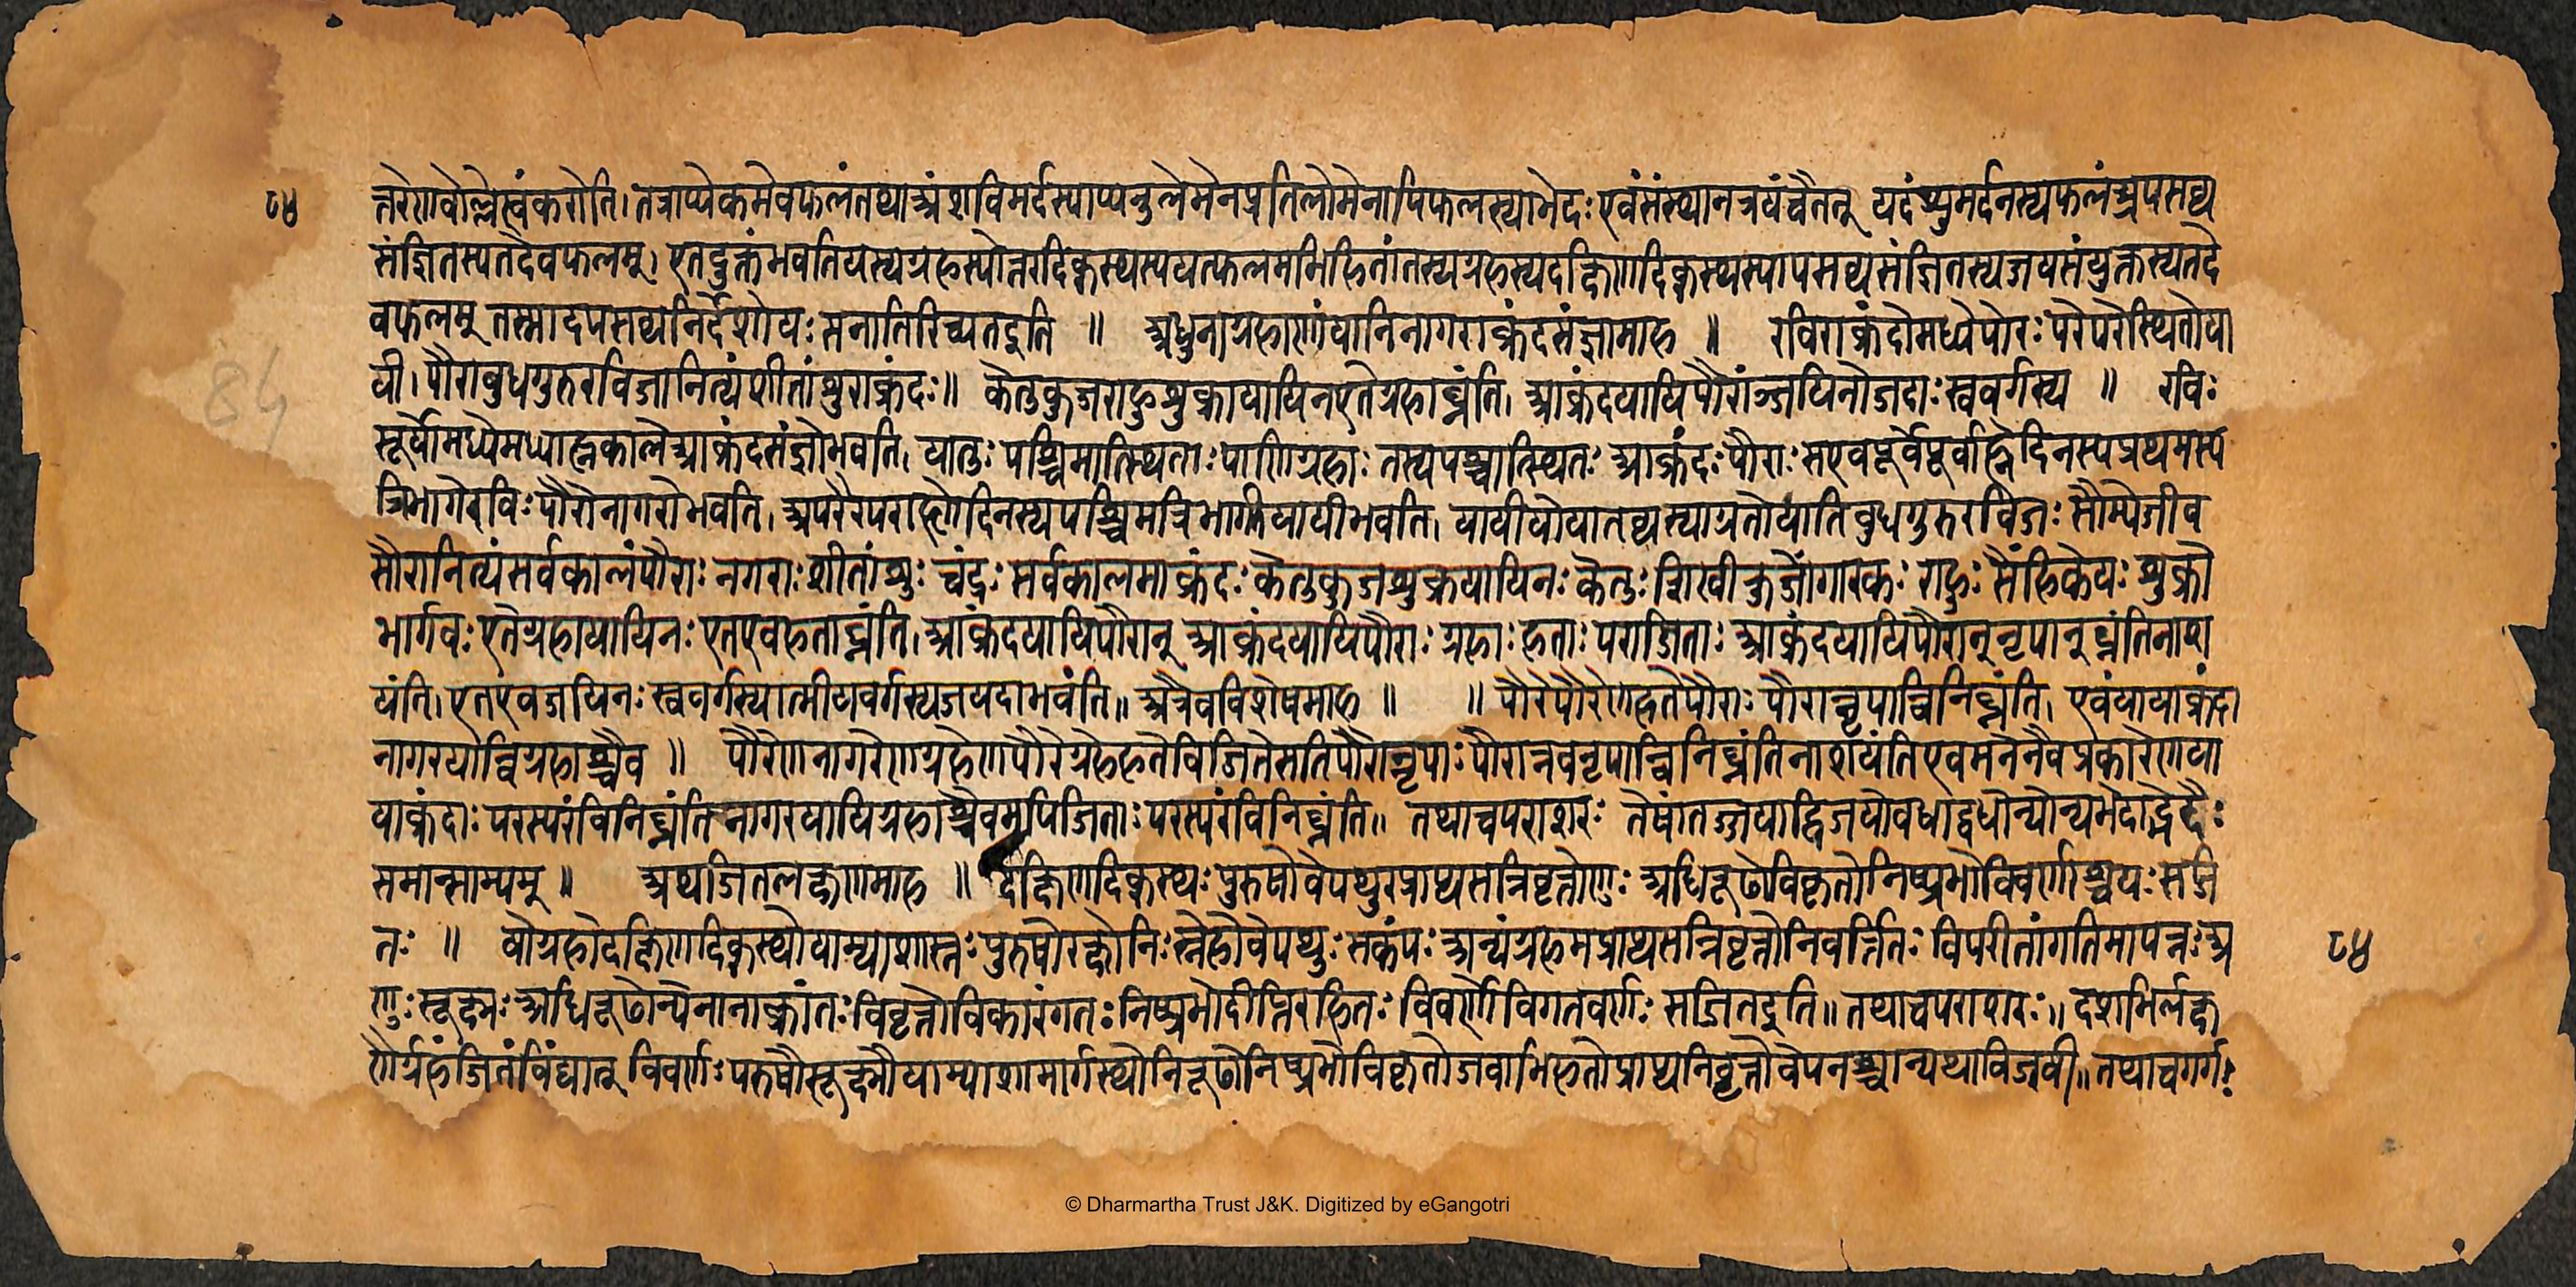 ८४
त्तरेणवोल्लेखंकरोति। तत्राप्येकमेवफलंतथाअंशविमर्दस्याप्यनुलोमेनप्रतिलोमेनापिफलस्याभेदः एवंसंस्थानत्रयंचैतत् यदंश्रुमर्दनस्यफलंअपसव्य
संज्ञितस्यतदेवफलम्। एतदुक्तंभवतियस्यग्रहस्योत्तरदिक्स्थस्ययत्फलमभिहितंतस्यग्रहस्यदक्षिणदिक्स्थस्यापसव्यसंज्ञितस्यजयसंयुक्तस्यतदे
वफलम् तस्मादपसव्यनिर्देशोयः सनातिरिच्यतइति ॥ अधुनाग्रहाणांयानिनागराक्रंदसंज्ञामाह ॥ रविराक्रंदोमध्येपौरः परेपरेस्थितोया
यी। पौराबुधगुरुरविजानित्यंशीतांश्रुराक्रंदः॥ केतुकुजराहुश्रुक्रायायिनएतेग्रहाघ्नंति। आक्रंदयायिपौरांज्जयिनोजदाः स्ववर्गस्य ॥ रविः
सूर्योमध्येमध्याह्नकालेआक्रंदसंज्ञोभवति। यातुः पश्चिमातिस्थिताः पार्ष्णिग्रहाः तस्यपश्चात्स्थितः आक्रंदः पौराः सएवपूर्वेपूर्वाह्नेदिनस्यप्रथमस्य
त्रिभागेरविः पौरोनागरोभवति। अपरेरपराह्णेदिनस्यपश्चिमत्रिभागेयायीभवति। यायीयोयातव्यस्याग्रतोयाति बुधगुरुरविजः सौम्येजीव
सौरानित्यंसर्वकालंपौराः नगराः शीतांश्रुः चंद्रः सर्वकालमाक्रंदः केतुकुजश्रुक्रयायिनः केतुः शिखीकुजोंगारकः राहुः सैंहिकेयः श्रुक्रो
भार्गवः एतेग्रहायायिनः एतएवहताघ्नंति। आक्रंदयायिपौरान् आक्रंदयायिपौराः ग्रहाः हताः पराजिताः आक्रंदयायिपौरान्नृपान् घ्नंतिनाश
यंति। एतएवजयिनः स्ववर्गस्यात्मीयवर्गस्यजयदाभवंति॥ अत्रैवविशेषमाह ॥ ॥ पौरेपौरेणहतेपौराः पौरान्नृपान्विनिघ्नंति। एवंयायाक्रंदा
नागरयायिग्रहाश्चैव ॥ पौरेणनागरेणग्रहेणपौरेग्रहेहतेविजितेसतिपौरानृपाः पौरानवनृपान्विनिघ्नंतिनाशयंतिएवमनेनैवप्रकारेणया
याक्रंदाः परस्परंविनिघ्नंतिनागरयायिग्रहाश्चैवमपिजिताः परस्परंविनिघ्नंति॥ तथाचपराशरः तेषांतज्जयाद्विजयोवधाद्वधोन्योन्यभेदाद्भेदैः
समान्साम्यम् ॥ अथजितलक्षणमाह ॥ दक्षिणदिक्स्थः पुरुषोवेपथुरप्राप्यसन्निवृत्तोणुः अधिरूढोविकृतोनिष्प्रभोविवर्णश्चयः सजि
तः ॥ योग्रहोदक्षिणदिक्स्थोयाम्याशास्तः पुरुषोरक्षोनिःस्नेहोवेपथुः सकंपः अन्यंग्रहमप्राप्यसन्निवृत्तोनिवर्त्तितिः विपरीतांगतिमापन्नः अ
णुः सूक्ष्मः अधिरूढोन्येनानाक्रांतः विवृत्तोविकारंगतः निष्प्रभोदीप्तिरहितः विवर्णोविगतवर्णः सजितइति॥ तथाचपराशरः॥ दशभिर्लक्ष
णैर्ग्रहंजितंविंद्यात् विवर्णः परुषोसूक्ष्मोयाम्याशामार्गस्थोनिरूढोनिष्प्रभोविकृतोजवाभिहतोप्राप्यनिवृत्तोवेपनश्चान्यथाविजयी॥ तथाचगर्गः
८४
84
© Dharmartha Trust J&K. Digitized by eGangotri